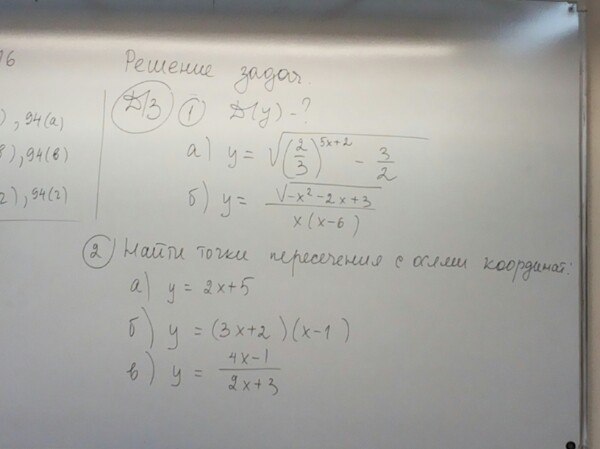 16
Решение задач.
), 94(а)
Д/З ① D(y) - ?
), 94(в)
а) y = √((2/3)^(5x+2) - 3/2)
), 94(г)
б) y = √(-x² - 2x + 3) / x(x-6)
② Найти точки пересечения с осями координат:
а) y = 2x+5
б) y = (3x+2)(x-1)
в) y = (4x-1)/(2x+3)